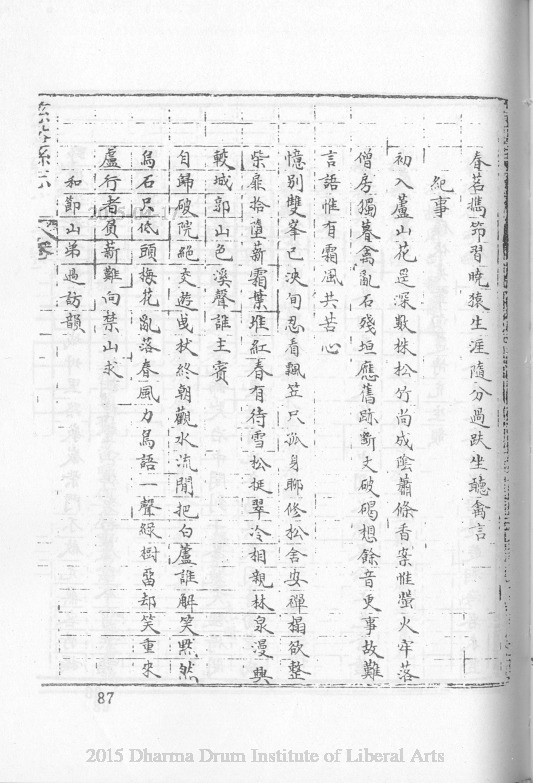 春茗攜節習曉猿生涯隨分過趺坐聽禽言
紀事
初入蘆山花是深數株松竹尚成陰蕭條香案惟螢火牢落
僧房獨暮禽亂石殘垣應舊跡斷文破碣想餘音更事故難
言語惟有霜風共苦心
憶別雙峯已浹旬忍看飄笠只孤身聊修松舍安禪榻欲整
柴扉拾墮薪霜葉堆紅春有待雪松挺翠冷相親林泉漫與
較城郭山色溪聲誰主賓
自歸破院絕交遊曳杖終朝觀水流閒把白蘆誰解笑默然
烏石只低頭梅花亂落春風力鳥語一聲綠樹留却笑重來
盧行者負薪難向禁山求
和節山弟過訪韻
87
2015 Dharma Drum Institute of Liberal Arts